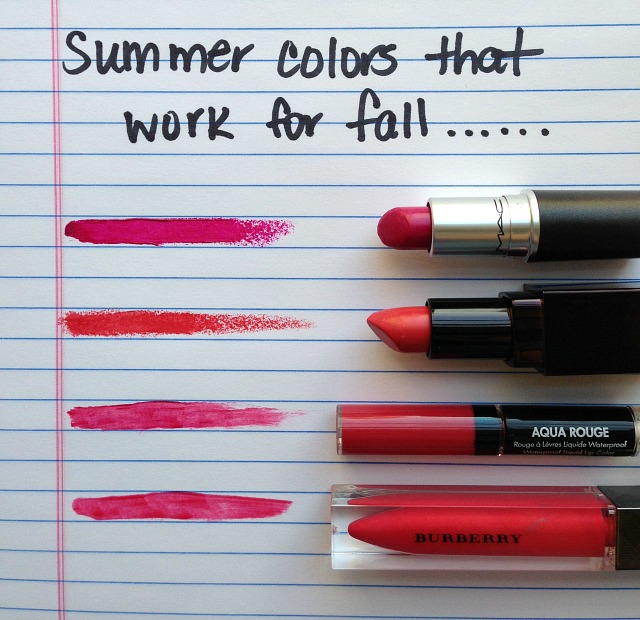 Summer colors that
work for fall......
MAC
AQUA ROUGE
Rouge à Lèvres Liquide Waterproof
Waterproof Liquid Lip Color
BURBERRY